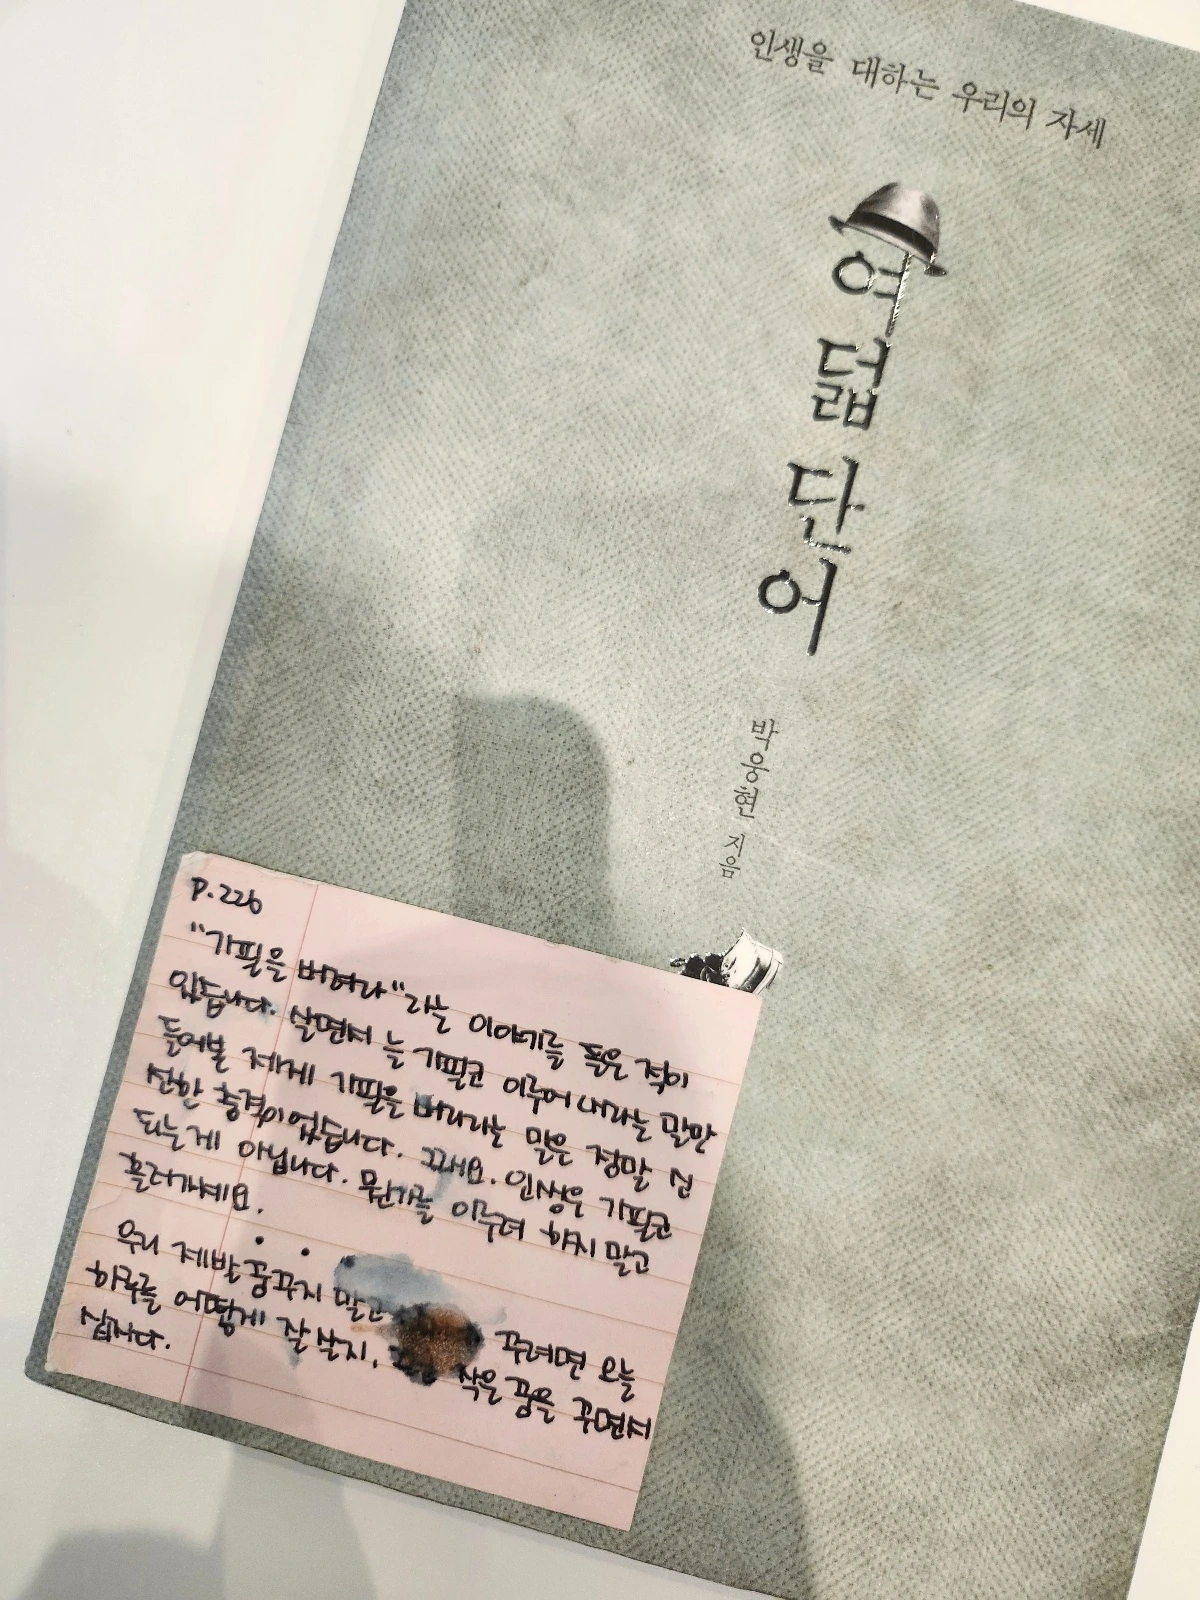 인생을 대하는 우리의 자세
여덟 단어
박웅현 지음
P.226
"기필을 버려라"라는 이야기를 들은 적이
있습니다. 살면서 늘 기필코 이루어내라는 말만
들어본 제게 기필을 버리라는 말은 정말 신
선한 충격이었습니다. 그래요. 인생은 기필코
되는게 아닙니다. 뭔가를 이루려 하지 말고
흘러가세요.
우리 제발 꿈꾸지 말고 꾸려면 오늘
하루를 어떻게 잘 살지, 작은 꿈을 꾸면서
삽시다.